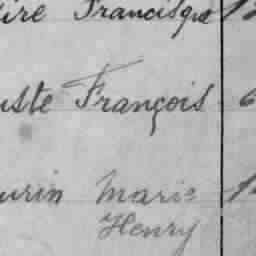 ire Francisque 12
uste François 6
urin Marie 1
Henry